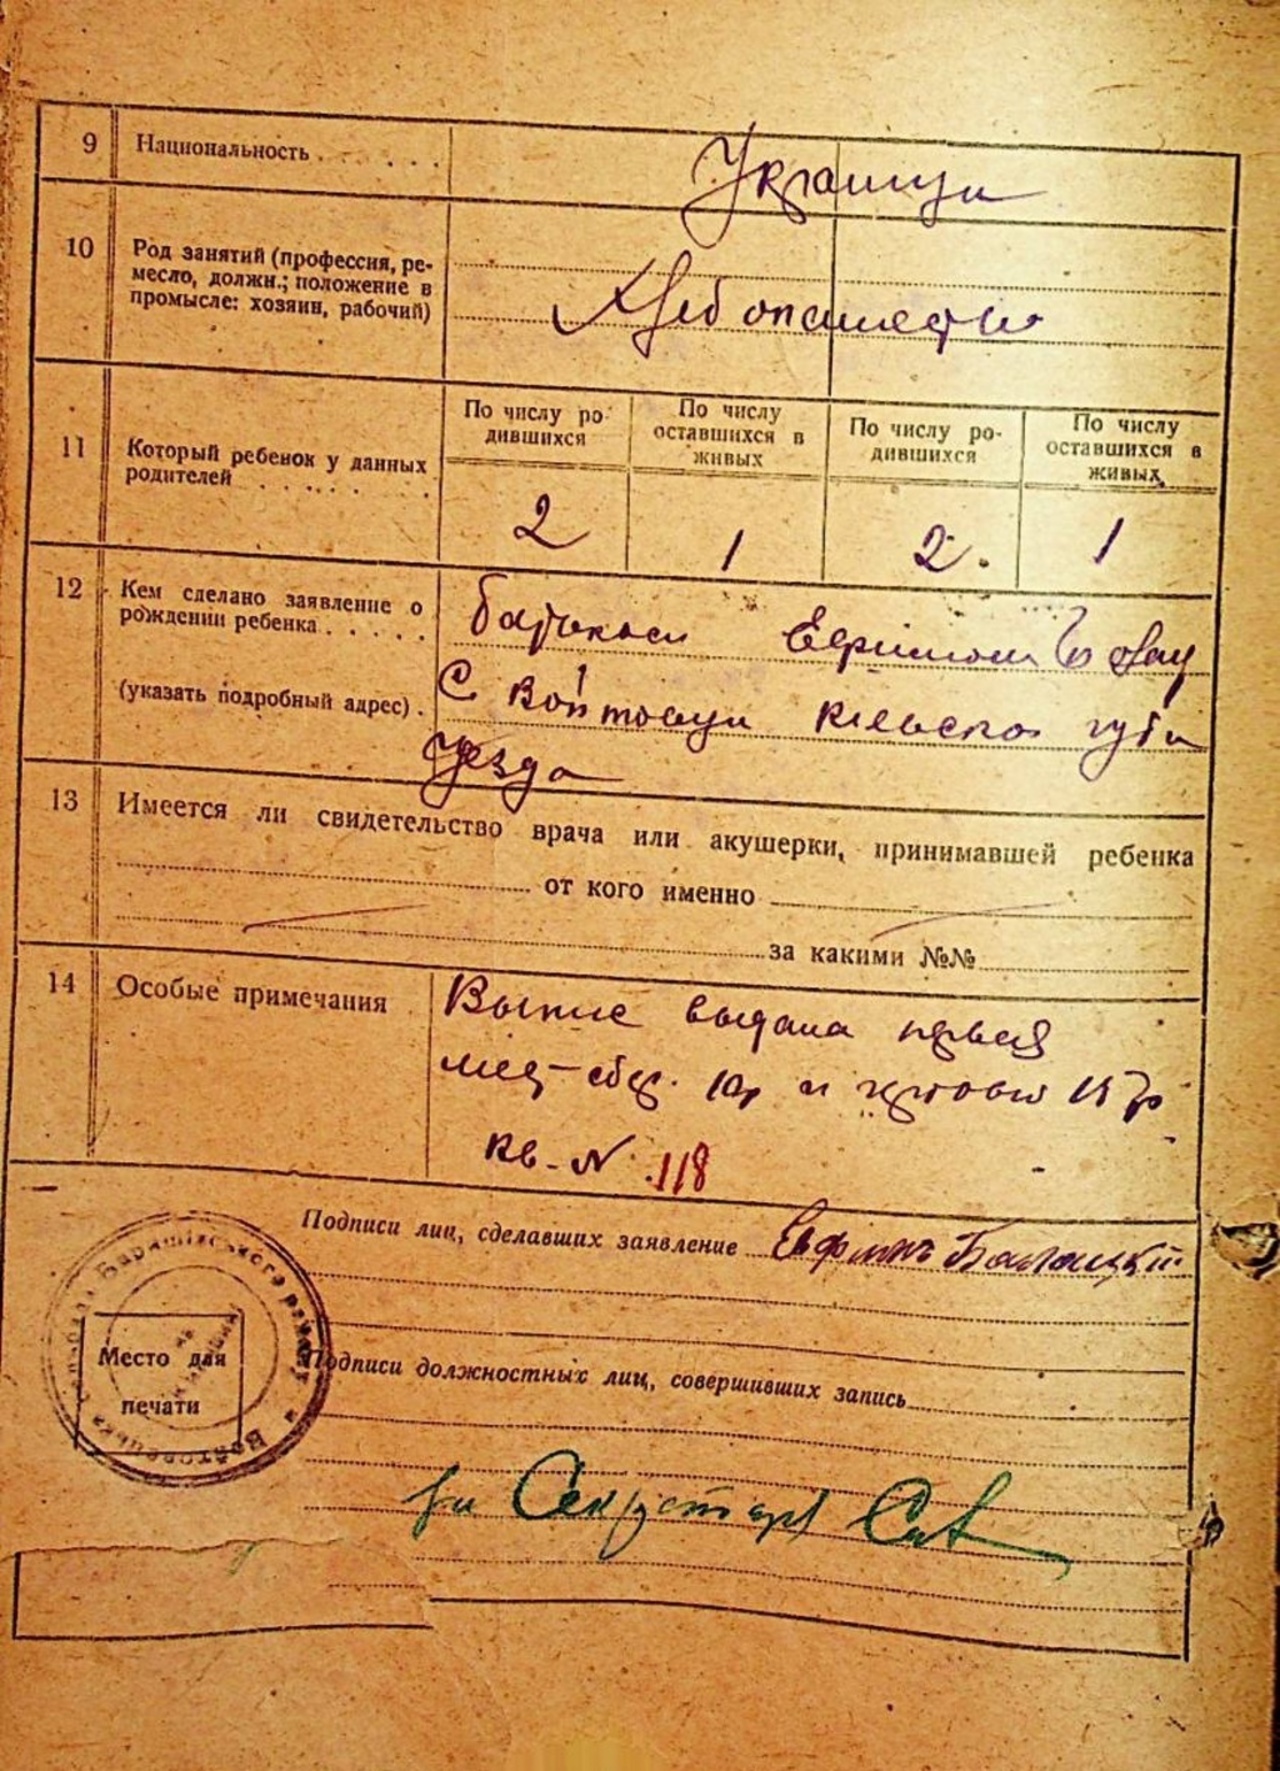 9 Национальность . . . . . .
Украинци
10 Род занятий (профессия, ре-
месло, должн.; положение в
промысле: хозяин, рабочий)
Хлебопашество
11 Который ребенок у данных
родителей
По числу ро-
дившихся
По числу
оставшихся в
живых
По числу ро-
дившихся
По числу
оставшихся в
живых
2 1 2. 1
12 Кем сделано заявление о
рождении ребенка . . . . .
(указать подробный адрес) .
батьком
С Войтовци Киевско губ и
уезда
13 Имеется ли свидетельство врача или акушерки, принимавшей ребенка
от кого именно
за какими №№
14 Особые примечания
Выпис выдана первая
и 15
кв. N. 118
Подписи лиц, сделавших заявление Евфимъ Балацкий
Место для
печати
Подписи должностных лиц, совершивших запись
Секретарь